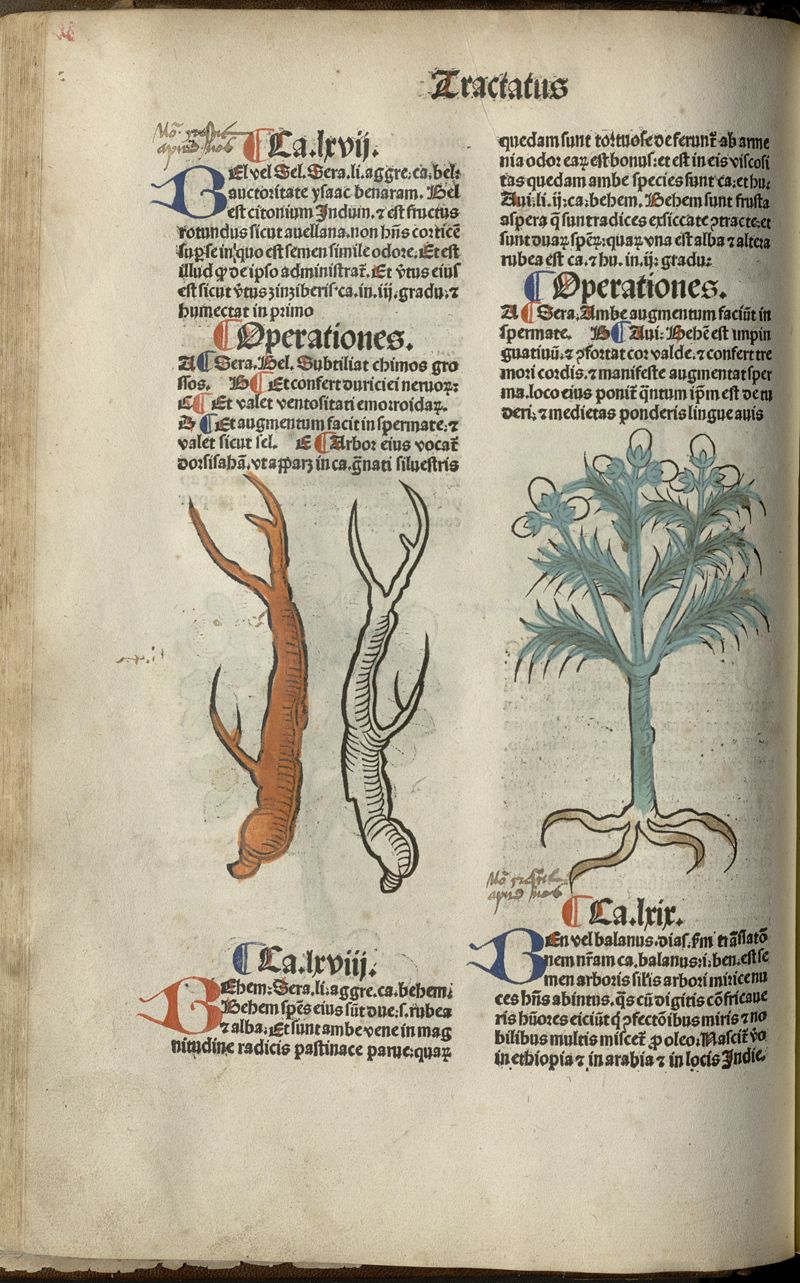 Tractatus
Ca.lxvij.
BEl vel Sel. Sera.li.aggre.ca.bel:
auctoritate ysaac benaram. Bel
est citonium Indum.⁊ est fructus
rotundus sicut auellana.non hñs corticē
sup se in quo est semen simile odore. Et est
illud qđ de ipso administrat̃. Et v̾tus eius
est sicut v̾tus zinziberis.ca.in.iij.gradu.⁊
humectat in primo
Operationes.
A Sera. Bel. Subtiliat chimos gro
ssos. B Et confert duriciei neruoꝝ:
C Et valet ventositati emorroidaꝝ.
D Et augmentum facit in spermate.⁊
valet sicut sel. E Arbor eius vocat̃
dorsisahā.vt apparꝫ in ca.g̃nati siluestris
Ca.lxviij.
BEhem. Sera.li.aggre.ca.behem.
Behem spẽs eius sũt due.s.rubea
⁊ alba. Et sunt ambe vene in mag
nitudine radicis pastinace parue.quaꝝ
quedam sunt tortuose deferunt̃ ab arme
nia odor eaꝝ est bonus.et est in eis viscosi
tas quedam ambe species sunt ca.et hu.
Aui.li.ij.ca.behem. Behem sunt frusta
aspera q̃ sunt radices exsiccate ꝯtracte.et
sunt duaꝝ spẽꝝ.quaꝝ vna est alba ⁊ altera
rubea est ca.⁊ hu.in.ij.gradu.
Operationes.
A Sera. Ambe augmentum faciũt in
spermate. B Aui. Behẽ est impin
guatiuũ.⁊ ꝯfortat cor valde.⁊ confert tre
mori cordis.⁊ manifeste augmentat sper
ma.loco eius ponit̃ q̃ntum ip̃m est de tu
deri.⁊ medietas ponderis lingue auis
Ca.lxix.
BEn vel balanus.dias.fm̃ trãslatõ
nem nr̃am ca.balanus.i.ben.est se
men arboris sil̃is arbori mirice nu
ces hñs abintus.q̃s cũ digitis cõfricaue
ris hũores eiciũt q̃ ꝯfectõibus miris ⁊ no
bilibus multis miscet̃ ꝓ oleo. Nascit̃ v̾o
in ethiopia ⁊ in arabia ⁊ in locis Indie.